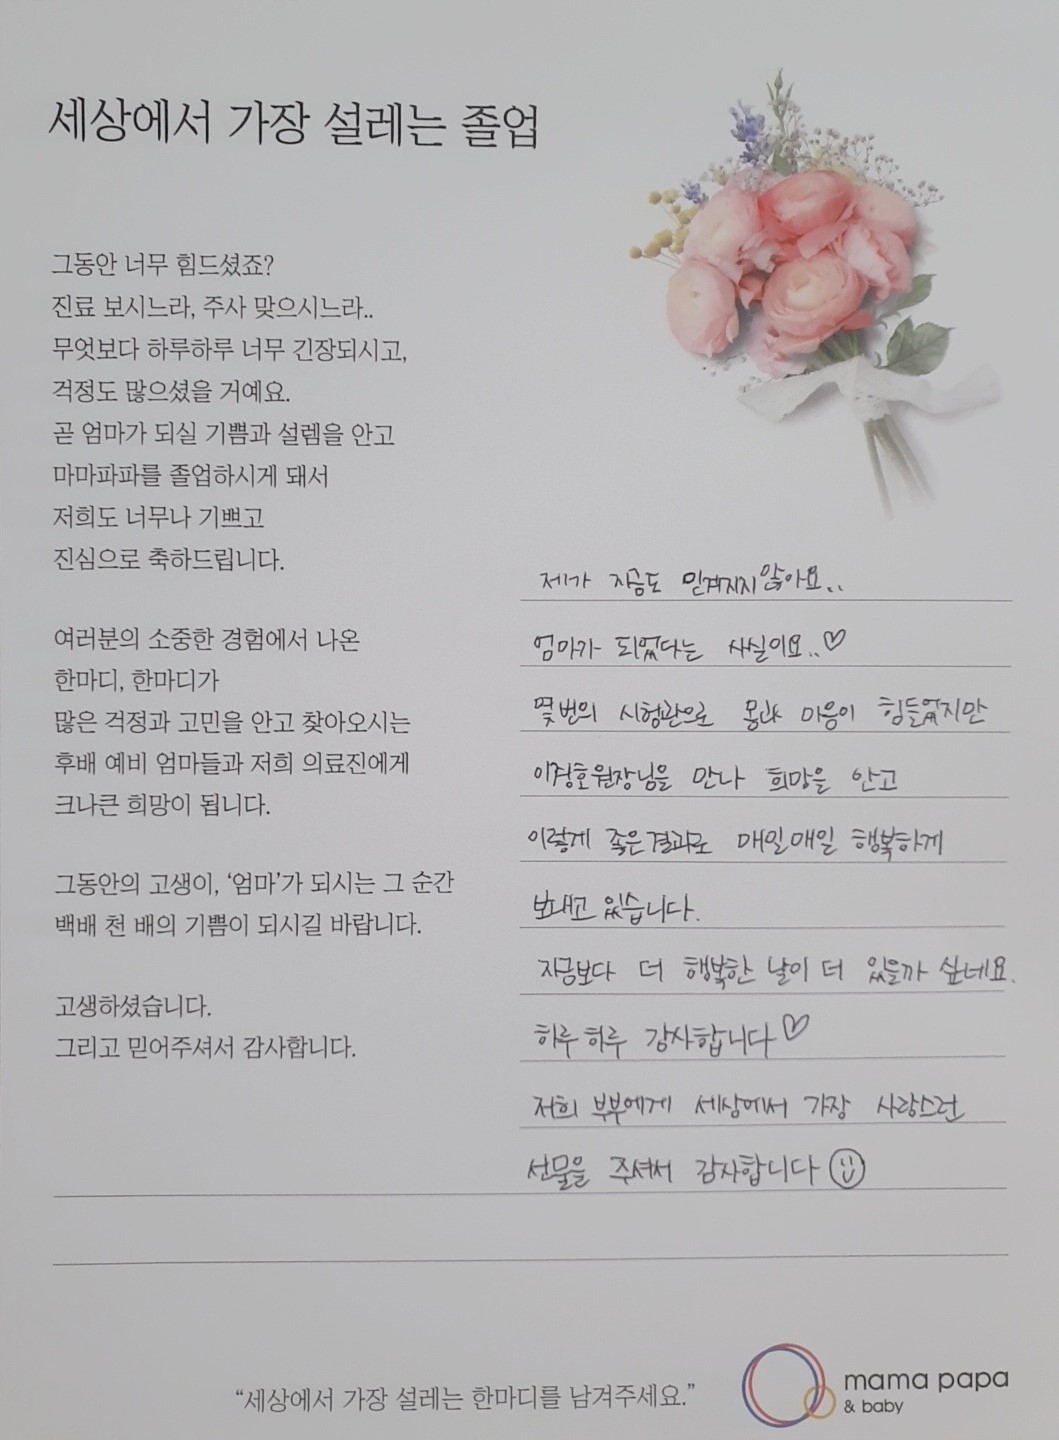 세상에서 가장 설레는 졸업
그동안 너무 힘드셨죠?
진료 보시느라, 주사 맞으시느라..
무엇보다 하루하루 너무 긴장되시고,
걱정도 많으셨을 거예요.
곧 엄마가 되실 기쁨과 설렘을 안고
마마파파를 졸업하시게 돼서
저희도 너무나 기쁘고
진심으로 축하드립니다.
여러분의 소중한 경험에서 나온
한마디, 한마디가
많은 걱정과 고민을 안고 찾아오시는
후배 예비 엄마들과 저희 의료진에게
크나큰 희망이 됩니다.
그동안의 고생이, ‘엄마’가 되시는 그 순간
백배 천 배의 기쁨이 되시길 바랍니다.
고생하셨습니다.
그리고 믿어주셔서 감사합니다.
제가 지금도 믿겨지지 않아요..
엄마가 되었다는 사실이요..♡
몇번의 시험관으로 몸과 마음이 힘들었지만
이정호원장님을 만나 희망을 안고
이렇게 좋은결과로 매일매일 행복하게
보내고 있습니다.
지금보다 더 행복한 날이 더 있을까 싶네요.
하루하루 감사합니다♡
저희 부부에게 세상에서 가장 사랑스런
선물을 주셔서 감사합니다☺
“세상에서 가장 설레는 한마디를 남겨주세요.”
mama papa
& baby